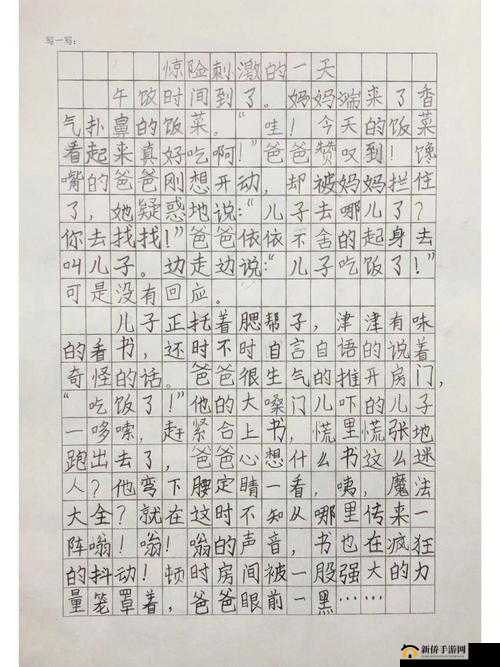 写一写：
惊险刺激的一天
午饭时间到了。妈妈端来了香
气扑鼻的饭菜。“哇！今天的饭菜
看起来真好吃啊！”爸爸赞叹到！馋
嘴的爸爸刚想开动，却被妈妈拦住
了，她疑惑地说：“儿子去哪儿了？
你去找找！”爸爸依依不舍的起身去
叫儿子。边走边说：“儿子吃饭了！”
可是没有回应。
儿子正托着腮帮子，津津有味
的看书，还时不时自言自语的说着
奇怪的话。爸爸很生气的推开房门，
“吃饭了！”他的大嗓门儿吓的儿子
一哆嗦，赶紧合上书，慌里慌张地
跑出去了，爸爸心想什么书这么迷
人？他弯下腰定睛一看，咦，魔法
大全？就在这时不知从哪里传来一
阵嗡！嗡！嗡的声音，书也在疯狂
的抖动！顿时房间被一股强大的力
量笼罩着，爸爸眼前一黑……
新侨手游网